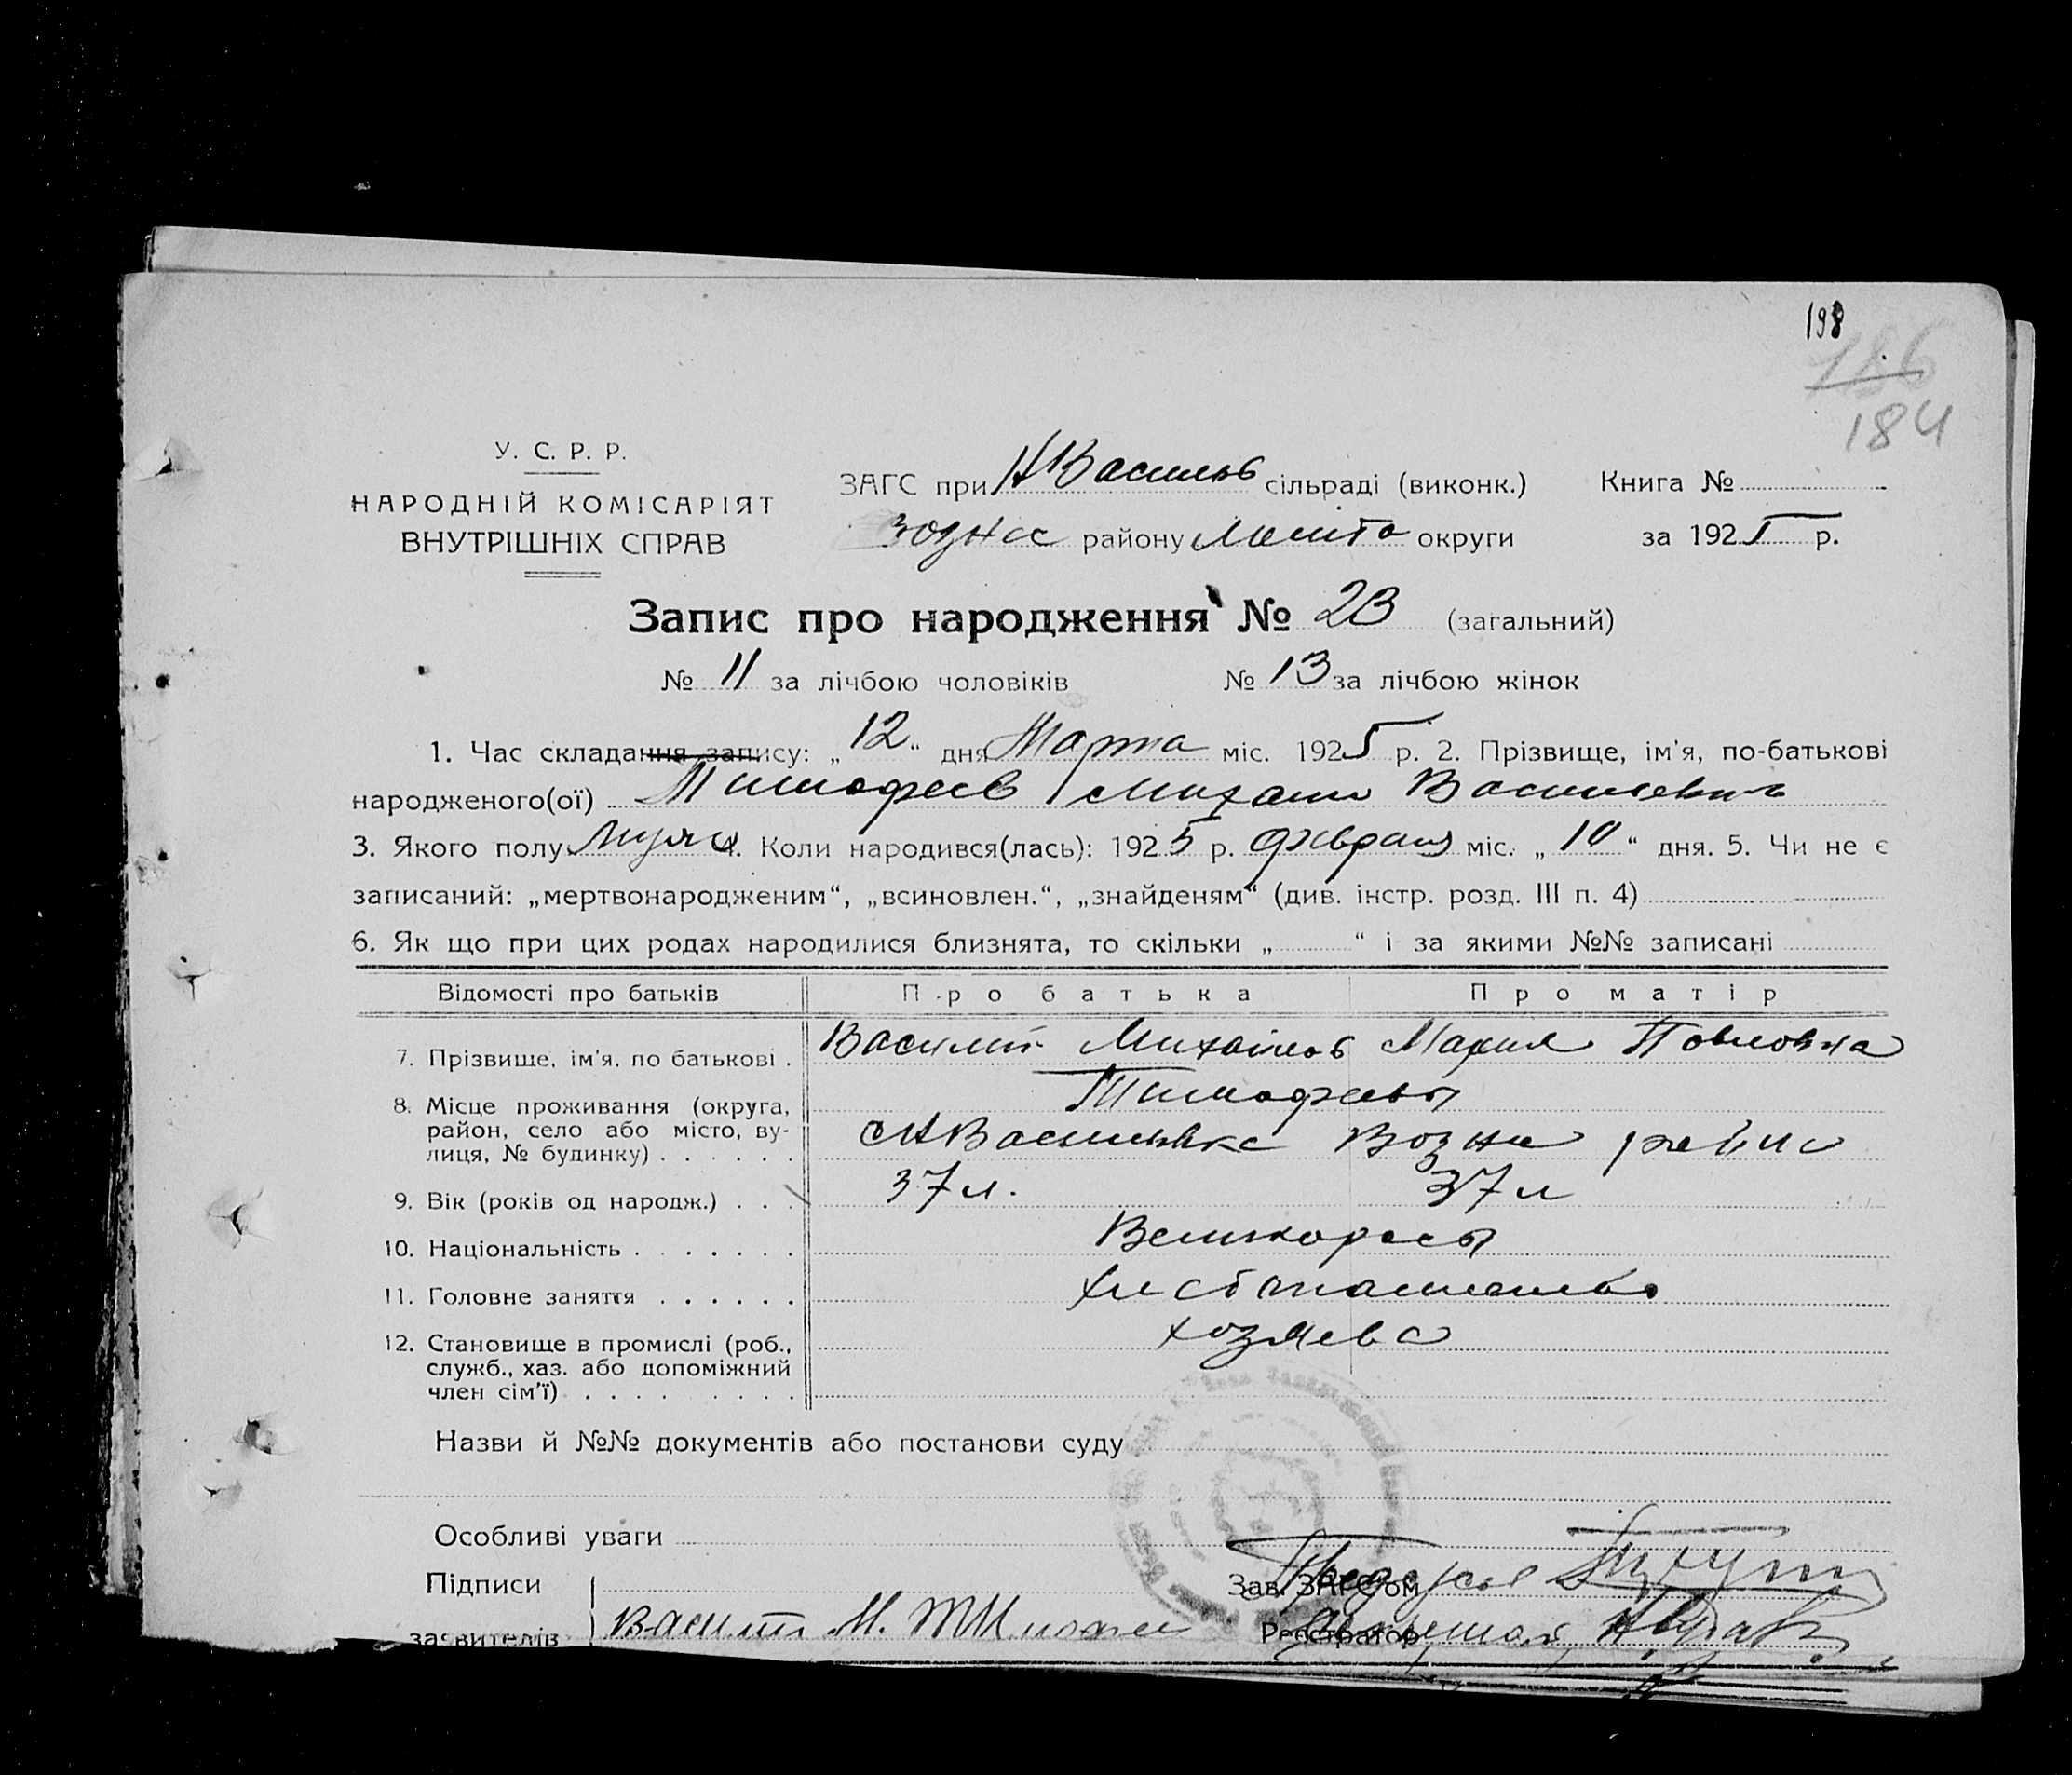 198
186
184
У. С. Р. Р.
НАРОДНІЙ КОМІСАРІЯТ
ВНУТРІШНІХ СПРАВ
ЗАГС при НВасильев сільраді (виконк.) Книга №
району округи за 1925 р.
Запис про народження № 23 (загальний)
№ 11 за лічбою чоловіків № 13 за лічбою жінок
1. Час складання запису: „12“ дня Марта міс. 1925 р. 2. Прізвище, ім'я, по-батькові
народженого(ої) Тимофеев Михаил Васильевич
3. Якого полу Мужс 4. Коли народився(лась): 1925 р. февраля міс. „10“ дня. 5. Чи не є
записаний: „мертвонародженим“, „всиновлен.“, „знайденям“ (див. інстр. розд. III п. 4)
6. Як що при цих родах народилися близнята, то скільки „ “ і за якими №№ записані
Відомості про батьків Про батька Про матір
7. Прізвище, ім'я, по батькові . Василий Михайлов Мария Павловна
Тимофеевы
8. Місце проживання (округа,
район, село або місто, ву-
лиця, № будинку) . . . . . . сНВасильевка Возне района
9. Вік (років од народж.) . . . 37 л. 37 л
10. Національність . . . . . . . Великоросы
11. Головне заняття . . . . . . Хлебопашество
12. Становище в промислі (роб.,
служб., хаз. або допоміжний
член сім'ї) . . . . . . . . . хозяева
Назви й №№ документів або постанови суду
Особливі уваги
Підписи Зав. ЗАГС'ом
заявителів Василий М. Тимофеев Реєстратор